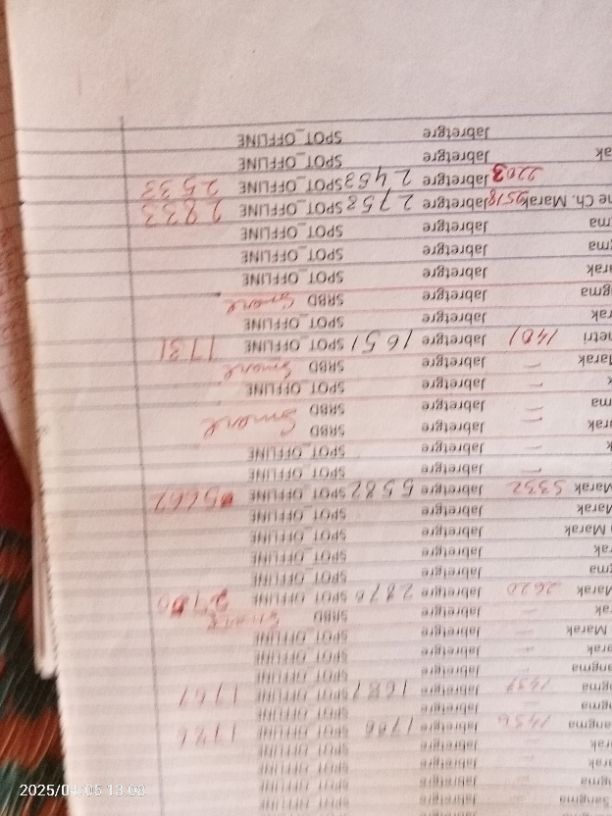 Sangma Jabretgre SPOT_OFFLINE
gma Jabretgre SPOT_OFFLINE
arak Jabretgre SPOT_OFFLINE
arak Jabretgre SPOT_OFFLINE
angma 1436 Jabretgre SPOT_OFFLINE 1786
gma Jabretgre SPOT_OFFLINE
ngma 1437 Jabretgre 1687 SPOT_OFFLINE 1767
angma Jabretgre SPOT_OFFLINE
arak Jabretgre SPOT_OFFLINE
Marak Jabretgre SPOT_OFFLINE
ak Jabretgre SRBD Smart
Marak 2620 Jabretgre 2870 SPOT_OFFLINE
gma Jabretgre SPOT_OFFLINE
rak Jabretgre SPOT_OFFLINE
Marak Jabretgre SPOT_OFFLINE
Marak Jabretgre SPOT_OFFLINE
Marak 5332 Jabretgre 5582 SPOT_OFFLINE 5662
Jabretgre SPOT_OFFLINE
k Jabretgre SPOT_OFFLINE
arak Jabretgre SRBD Smart
ma Jabretgre SRBD
k Jabretgre SPOT_OFFLINE
Marak Jabretgre SRBD Smart
netri 1401 Jabretgre 1651 SPOT_OFFLINE 1731
rak Jabretgre SPOT_OFFLINE
ngma Jabretgre SRBD Smart
arak Jabretgre SPOT_OFFLINE
gma Jabretgre SPOT_OFFLINE
ma Jabretgre SPOT_OFFLINE
ne Ch. Marak Jabretgre 2758 SPOT_OFFLINE 2833
2203 Jabretgre 2453 SPOT_OFFLINE 2533
ak Jabretgre SPOT_OFFLINE
Jabretgre SPOT_OFFLINE
2025/04/05 13:08